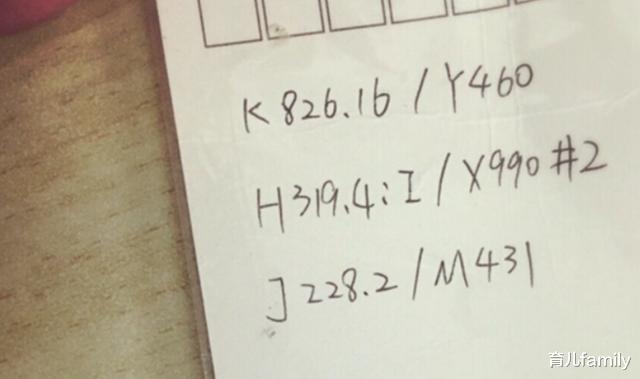 K826.16/Y460
H319.4:I/X990#2
J228.2/M431
育儿family